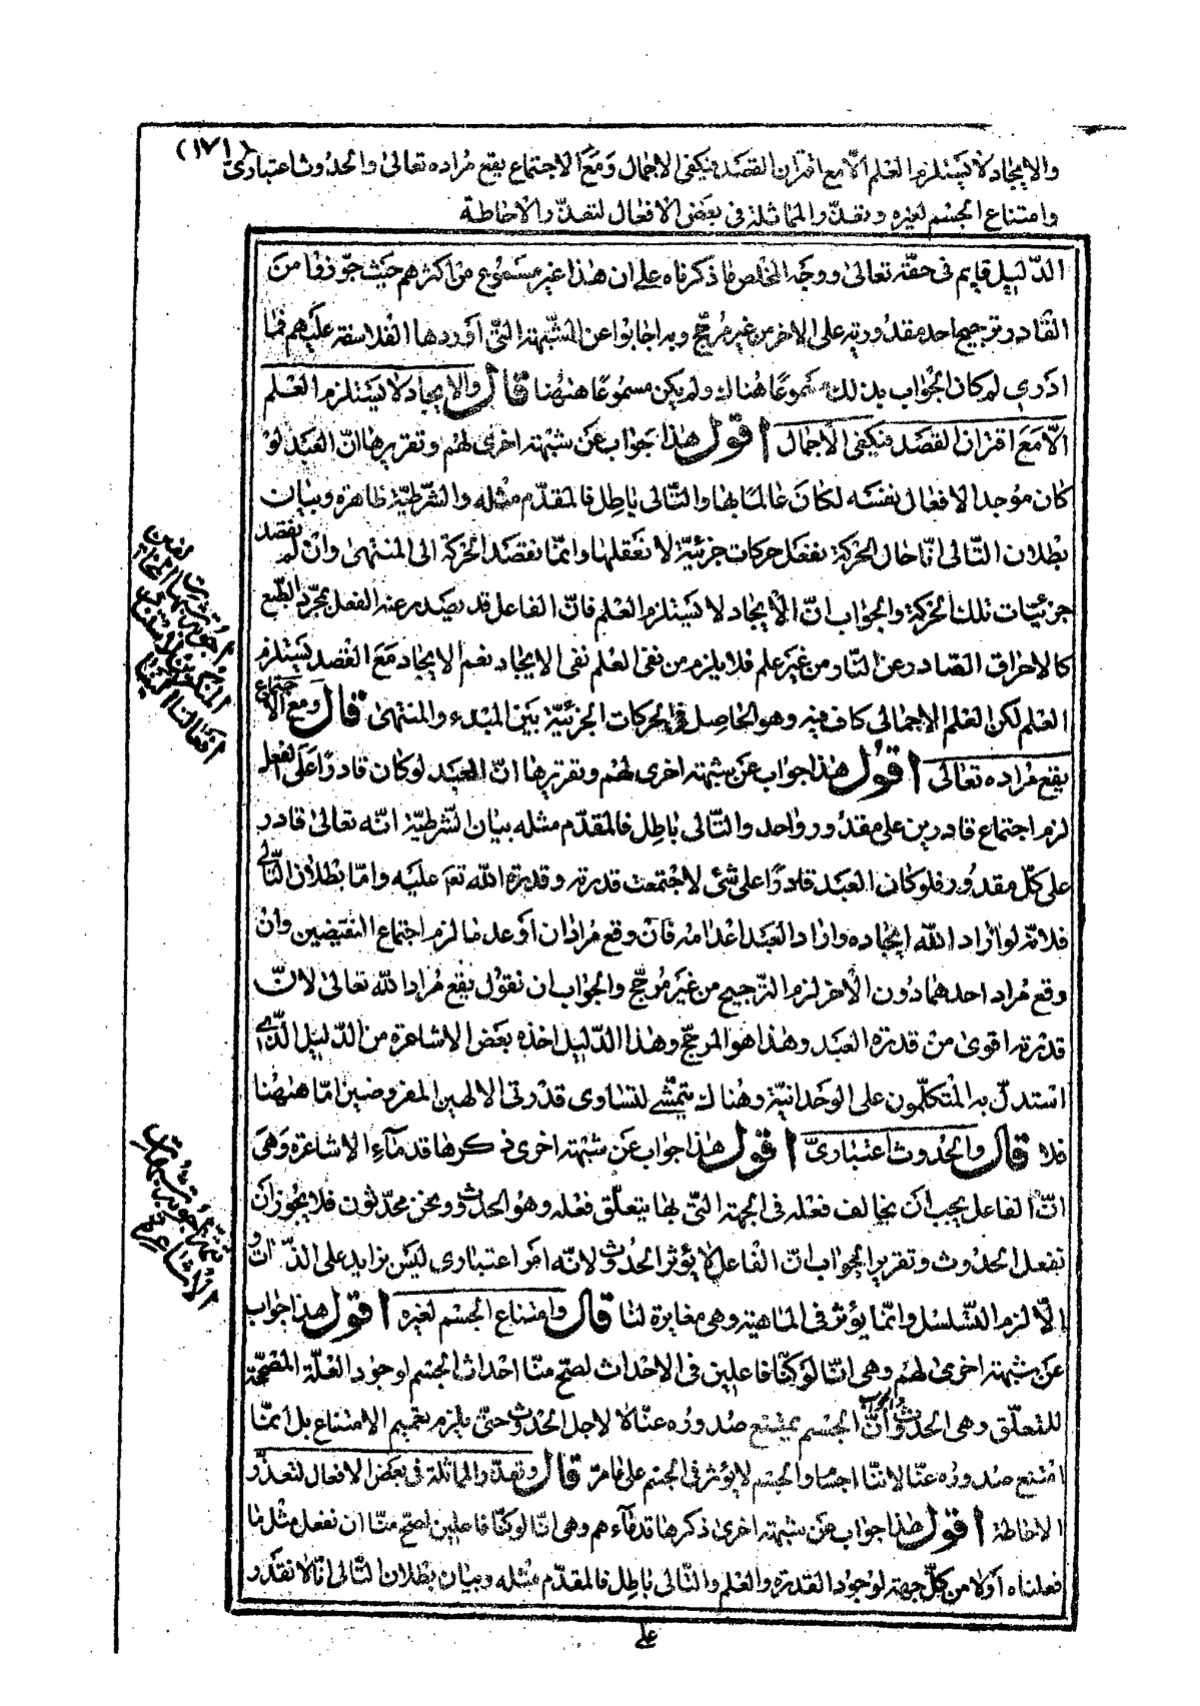 (١٧١)
والايجاد لا يستلزم العلم الّا مع اقتران القصد فيكفى الاجمال وَمَعَ الاجتماع يقع مُراده تعالىٰ والحدُوث اعتبارىّ
وامتناع الجسم لغيره وتعذّر المماثلة فى بعض الافعال لتعذّر الاحاطة
الدّليل قايم فى حقّه تعالىٰ ووجه المخلص ما ذكرناه على ان هذا غير مسموُع من اكثرهم حيث جوّزوا من
القادر ترجيح احد مقدُوريه على الاخر من غير مُرجّح وبه اجابوا عن الشّبهة التّى اَوردها الفلاسفة عليهم فما
ادرى لم كان الجوَاب بذلك مسموُعًا هُناك ولم يكن مسمُوعًا هٰهُنا قال والايجاد لا يَستلزم العلم
الّا مَعَ اقتران القصد فيكفى الاجمال اقول هذا جَواب عَن شبهة اخرى لهُم وتقريرها انّ العَبد لوْ
كان مُوجدا لافعال نفسه لكانَ عالما بها والتّالى باطِل فالمقدّم مثله والشّرطيّة ظاهرة وبيان
بطلان التّالى انّا حال الحركة نفعل حركات جزئيّة لا نعقلها وانّما نقصد الحركة الى المنتهىٰ وانْ لم نقصد
جزئيّات تلك الحركة والجوَاب انّ الْايجاد لا يَستلزم العلم فانّ الفاعل قد يصدر عنه الفعل بمجرّد الطبع
كالاحراق الصّادر عن النّار من غير علم فلا يلزم من نفى العلم نفى الايجاد نعم الايجاد مَعَ القصد يَستلزم
العلم لكن العلم الاجمالى كاف فيه وهو الحاصل فى الحركات الجزئيّة بَين المبْدء والمنتهىٰ قال ومع الاجتماع
يقع مُراده تعالىٰ اقول هٰذا جواب عَن شبهة اخرى لهُم وتقريرها انّ العَبد لو كان قادرًا على الفعل
لزم اجتماع قادرين على مقدُور واحد والتّالى باطِل فالمقدّم مثله بيان الشّرطيّة انّه تعالىٰ قادر
على كلّ مقدُور فلو كان العَبد قادرًا على شئ لاجتمعت قدرته وقدرة الله تعَ عليه وامّا بطلان التّالى
فلانّه لو اراد الله ايجاده واراد العَبد اعدامه فان وقع مُرادان اَو عدما لزم اجتماع النّقيضين وانْ
وقع مُراد احدهما دُون الْاخر لزم التّرجيح من غير مُرجّح والجوَاب ان نقُول يقع مُراد الله تعالىٰ لانّ
قدرته اقوىٰ منْ قدرة العبد وهٰذا هو المرجّح وهٰذا الدّليل اخذه بعض الاشاعرة من الدّليل الّذى
استدلّ به المتكلّمون على الوحدانيّة وهُناك يتمشّى لتساوى قدْرتى الالهين المفروضين امّا هٰهُنا
فلا قال والحُدوث اعتبارىّ اقول هٰذا جواب عَن شبهة اخرى ذكرها قدماء الاشاعرة وَهىَ
انّ الفاعل يجب اَن يخالف فعْله فى الجهة الّتى بها يتعلّق فعْله وهُو الحدُوث ونحن محدثون فلا يجُوز اَن
نفعل الحدُوث وتقرير الجوَاب انّ الْفاعل لا يُؤثر الحُدُوث لانّه امَر اعتبارى ليس بزايد على الذّات
والّا لزم التّسلسل وانّما يؤثر فى الماهيّة وهى مغايرة لنا قال وامتناع الجسم لغيره اقول هذا جوَاب
عَن شبهة اخرىٰ لهُم وهى انّا لو كنّا فاعلين فى الاحداث لصحّ منّا احداث الجسم لوجُود العلّة المصحّحة
للتعلّق وهى الحدُوث والجَواب انّ الجسم يمتنع صدُوره عنّا لا لاجل الحُدوث حتّى يلزم تعميم الامتناع بل انّما
امتنع صدُوره عنّا لانّنا اجسام والجسم لا يؤثر فى الجسم على ما مرّ قال وتعذّر المماثلة فى بعض الافعال لتعذّر
الاحاطة اقول هٰذا جواب عَن شبهة اخرىٰ ذكرها قدماء هم وهى انّا لو كنّا فاعلين لصحّ منّا ان نفعل مثل ما
فعلناه اَوّلا من كلّ جهة لوُجوُد القدرة والعلم والتّالى باطل فالمقدّم مثله وبيان بطلان التّالى انّا لا نقدر
على